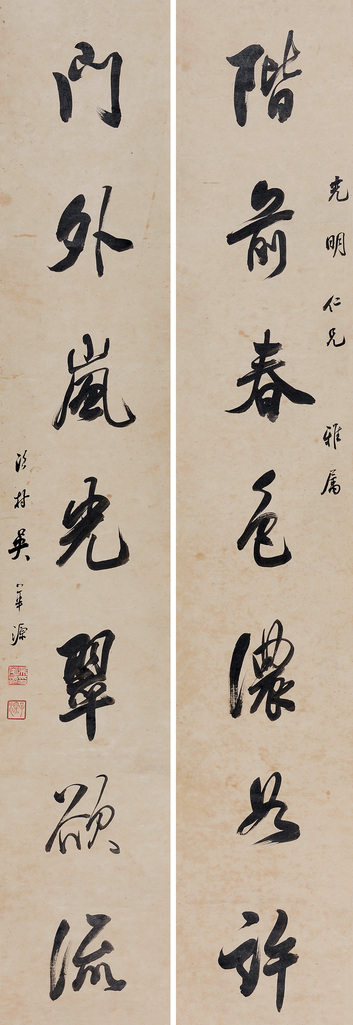 光明仁兄雅属
階前春色濃如許
門外嵐光翠欲流
吳華源